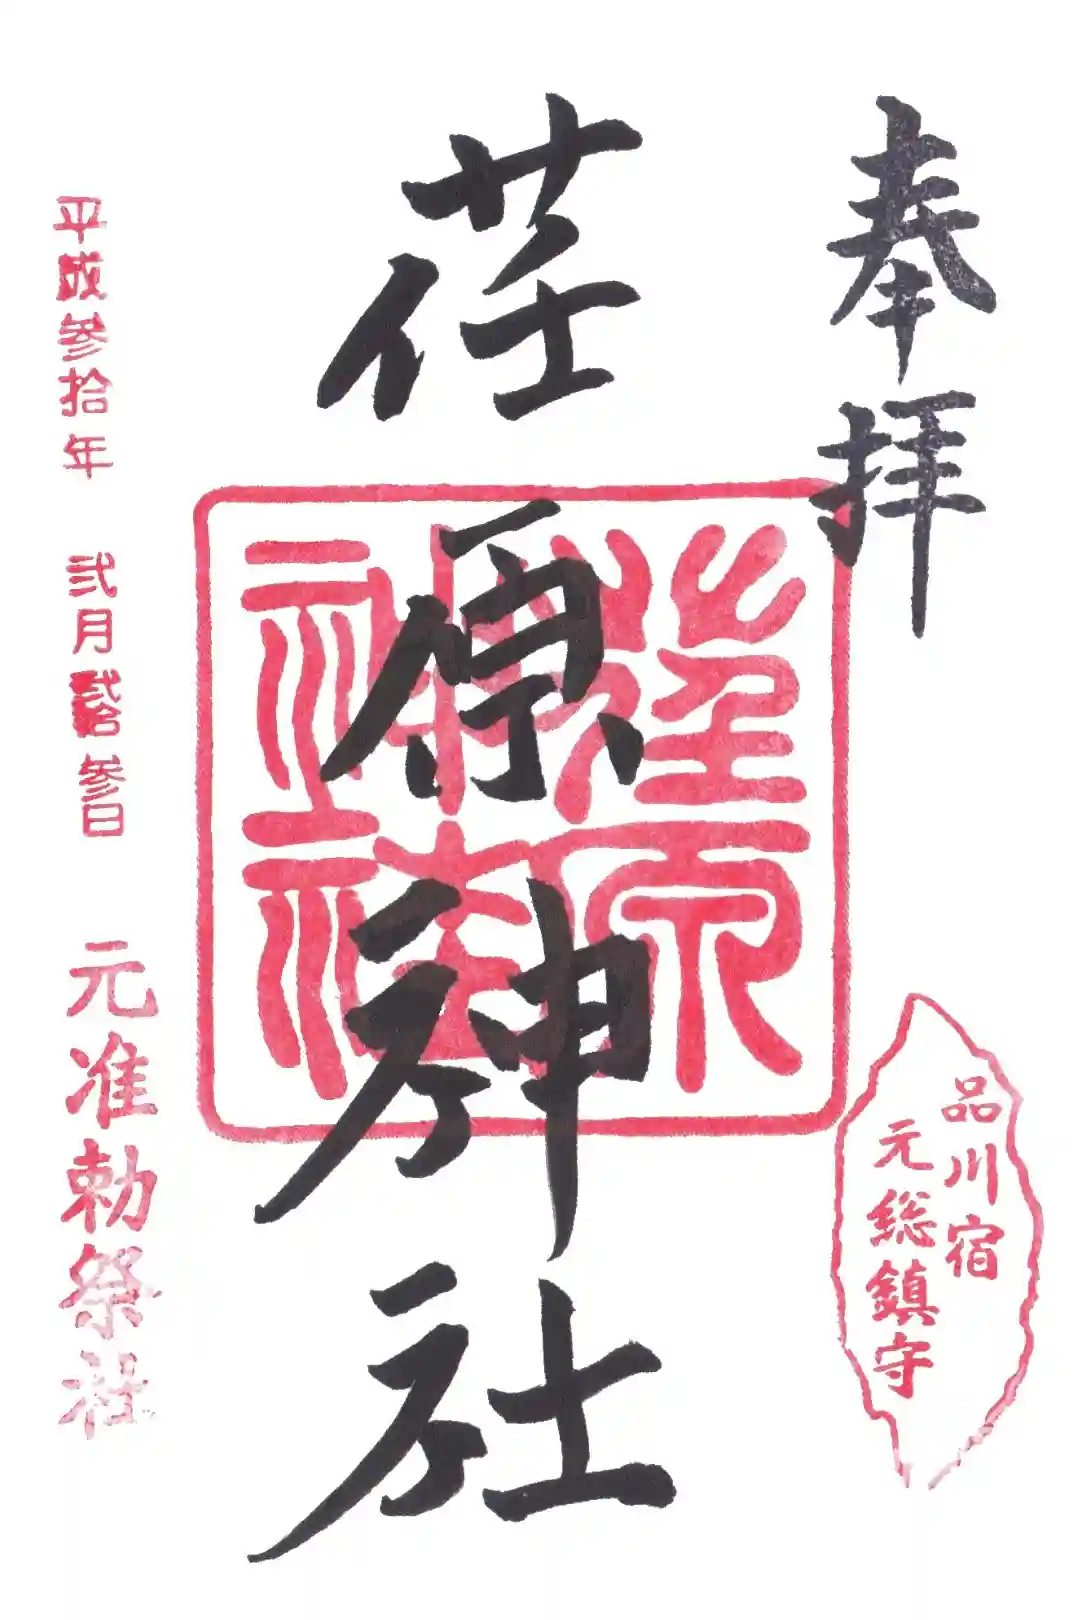 奉拝
品川宿
元総鎮守
荏原神社
荏原神社
平成参拾年 弐月弐拾参日
元准勅祭社